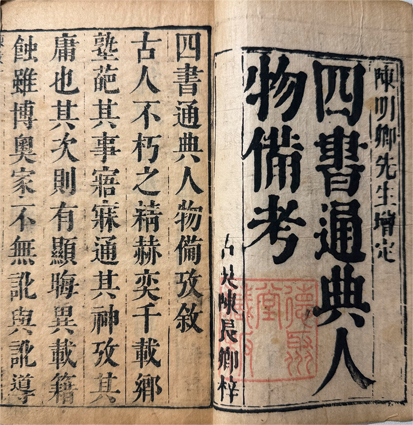 陳明卿先生增定
四書通典人
物備考
古吳陳長卿梓
四書通典人物備攷敘
古人不朽之精赫奕千載鄉
塾葩其事寤寐通其神攷其
庸也其次則有顯晦異載籍
蝕雖博奧家不無訛與訛導